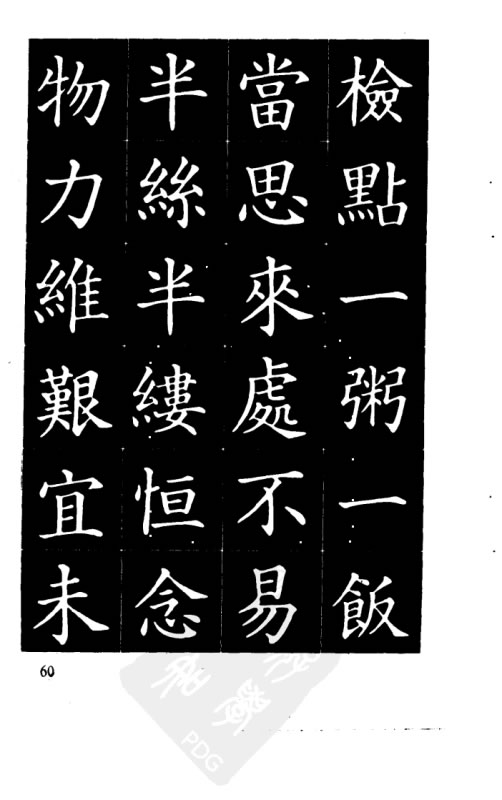 檢點一粥一飯
當思來處不易
半絲半縷恒念
物力維艱宜未
60
PDG